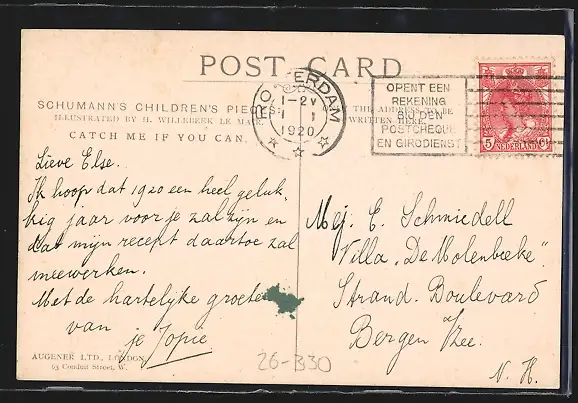 POST CARD
SCHUMANN'S CHILDREN'S PIECES:
ILLUSTRATED BY H. WILLEBEEK LE MAIR.
CATCH ME IF YOU CAN.
THE ADDRESS
WRITTEN HERE.
ROTTERDAM
1-2V
1 1
1920
OPENT EEN
REKENING
BIJ DEN
POSTCHEQUE
EN GIRODIENST
5 NEDERLAND Ct
Lieve Else.
Ik hoop dat 1920 een heel geluk,
kig jaar voor je zal zijn en
dat mijn recept daartoe zal
meewerken.
Met de hartelijke groeten
van je Jopie
Mej. E. Schmiedell
Villa "De Molenbeeke".
Strand. Boulevard
Bergen a/Zee.
N. H.
AUGENER LTD., LONDON
63 Conduit Street, W.
26-330